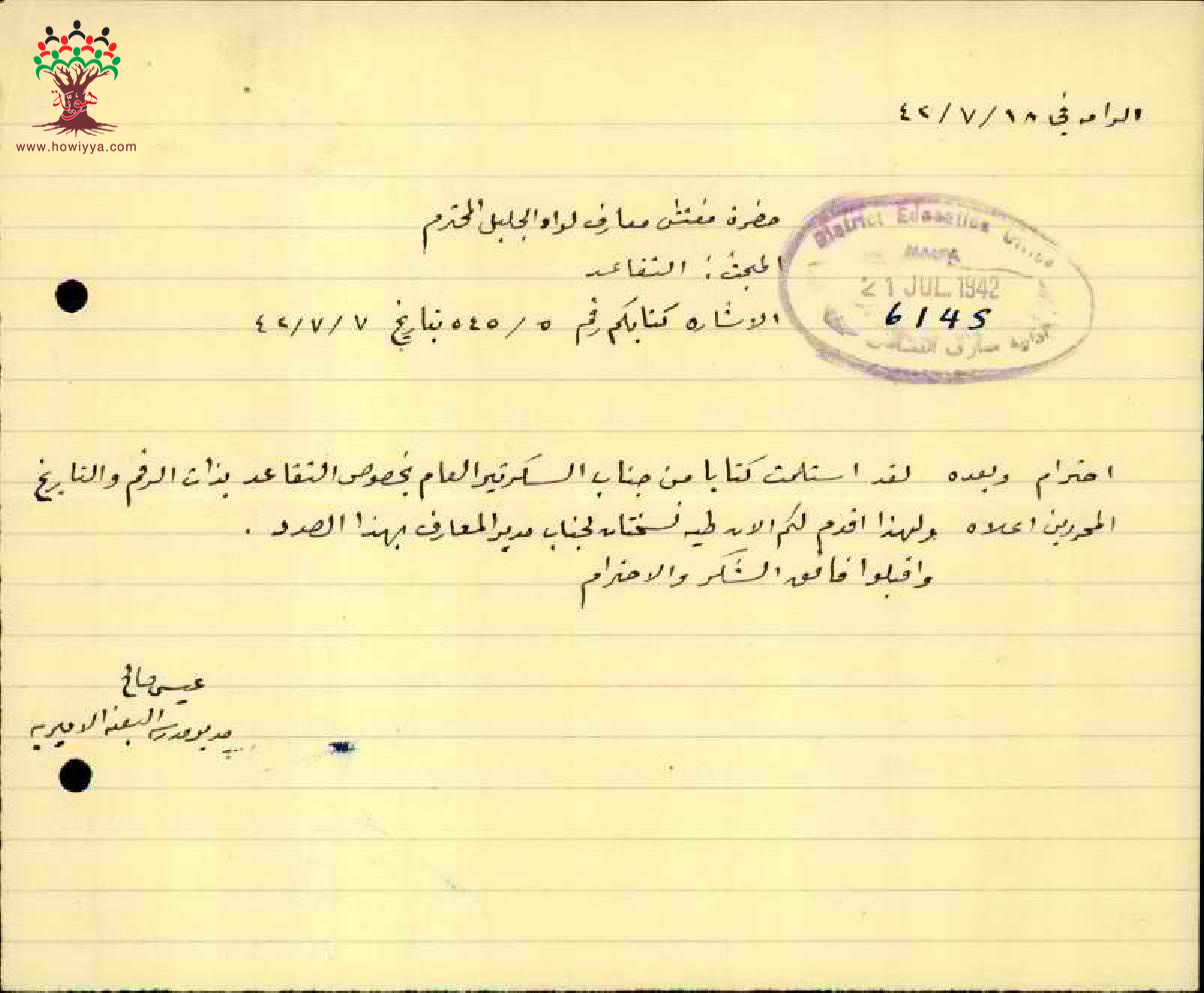 هوية
www.howiyya.com
الرامه في ١٨/٧/٤٢
حضرة مفتش معارف لواء الجليل المحترم
المبحث: التقاعد
الاشاره كتابكم رقم ٥٤٥/٥ بتاريخ ٤٢/٧/٧
District Education Office
21 JUL 1942
6145
احترام وبعده لقد استلمت كتابا من جناب السكرتير العام بخصوص التقاعد بذات الرقم والتاريخ
المحررين اعلاه ولهذا اقدم لكم الان طيه نسختان لجناب مدير المعارف بهذا الصدد .
واقبلوا فائق الشكر والاحترام
عيسى صالح
مدير مدرسة البعنه الاميريه